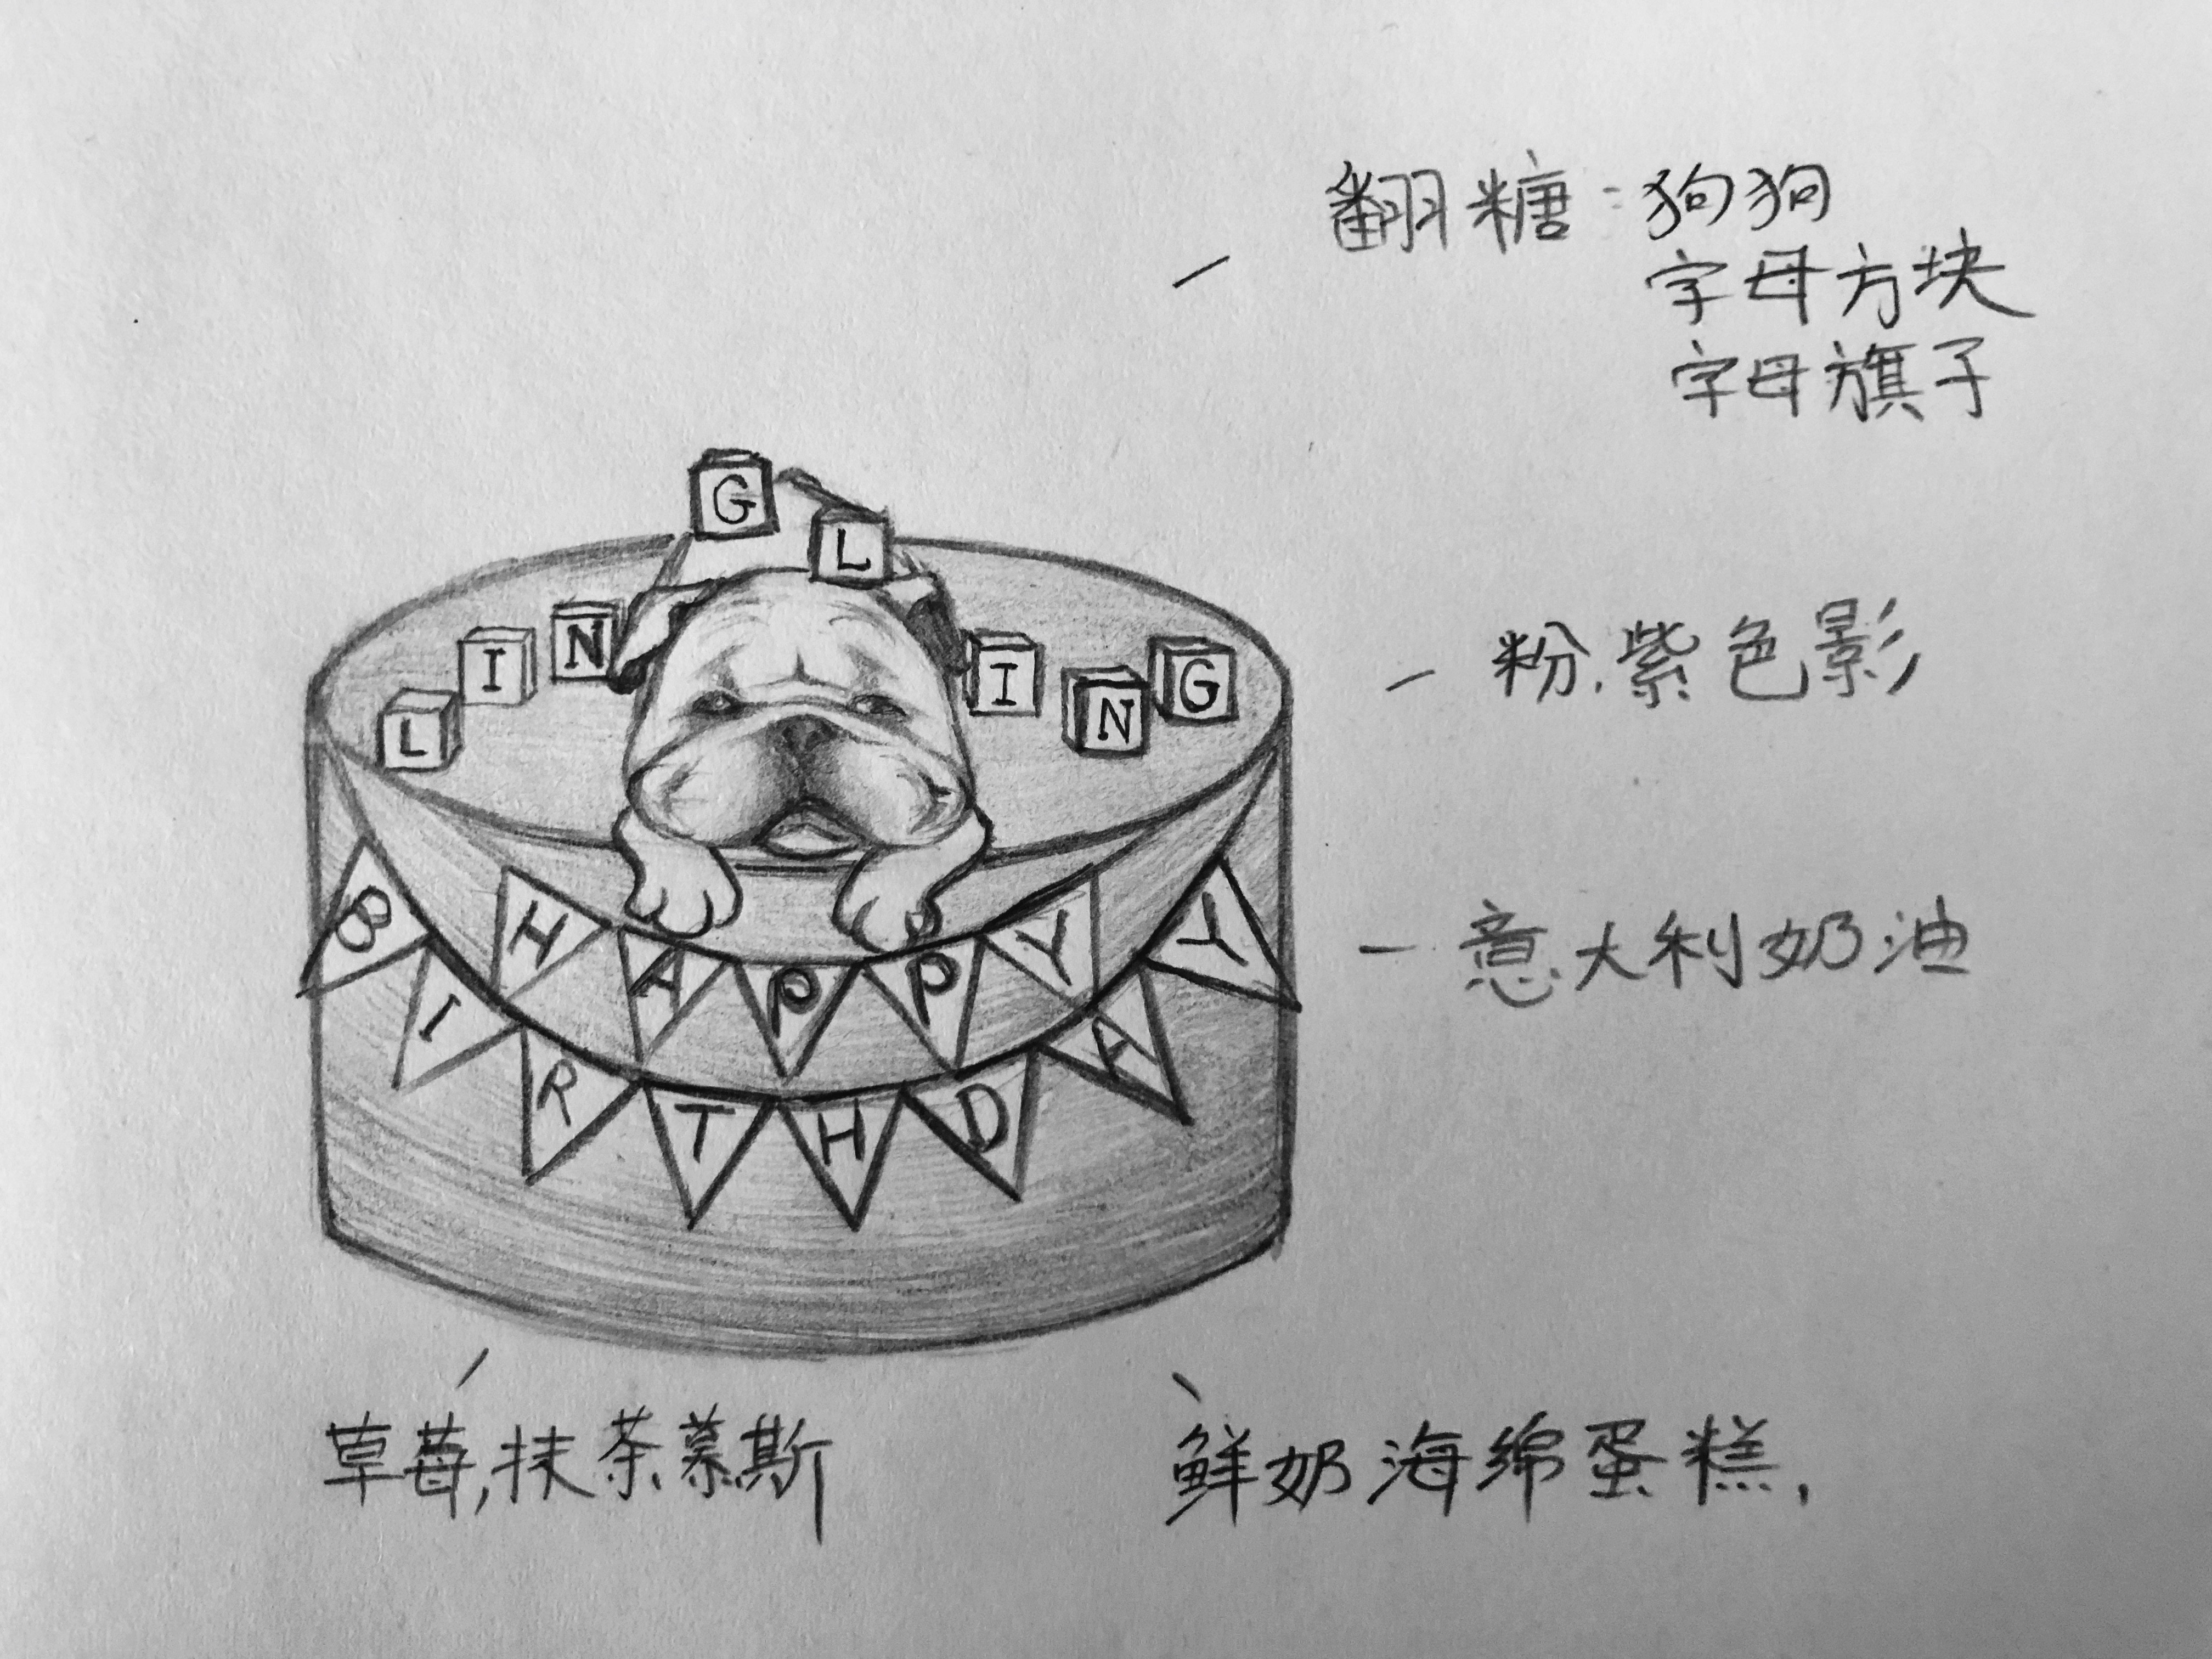 翻糖：狗狗
字母方块
字母旗子
G L
L I N I N G
粉.紫色影
H A P P Y
B I R T H D A Y
－意大利奶油
草莓,抹茶慕斯
鲜奶海绵蛋糕,